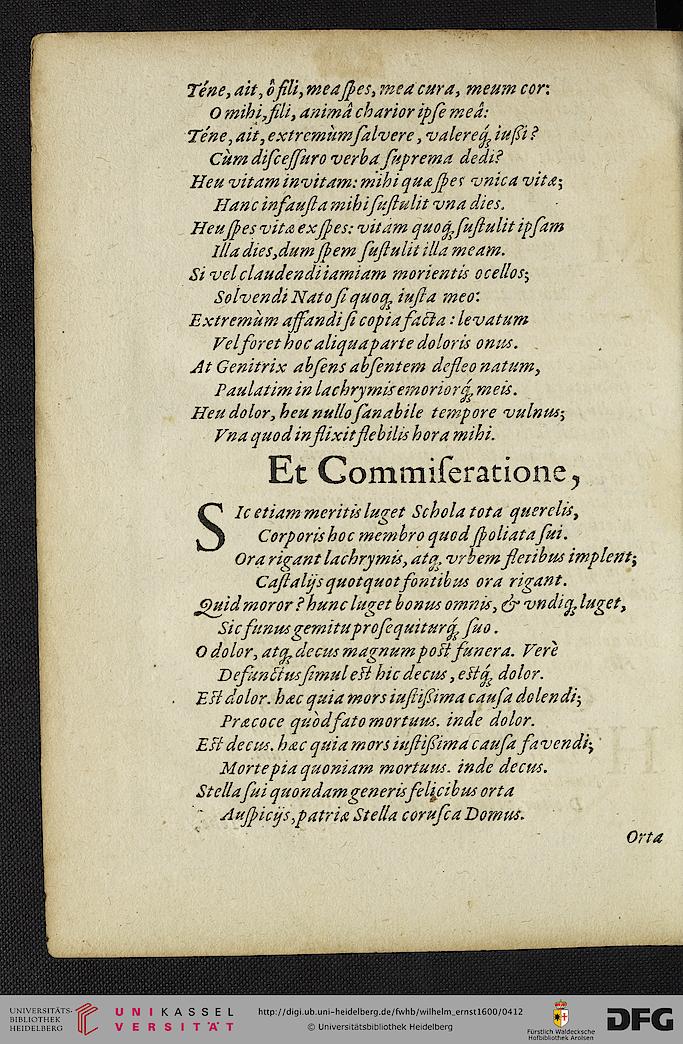 Téne, ait, ô fili, mea ſpes, mea cura, meum cor:
O mihi, fili, animâ charior ipſe meâ:
Téne, ait, extremùm ſalvere, valereq́; iußi?
Cùm diſceſſuro verba ſuprema dedi?
Heu vitam invitam: mihi quæ ſpes vnica vitæ;
Hanc infauſta mihi ſuſtulit vna dies.
Heu ſpes vitæ exſpes: vitam quoq́; ſuſtulit ipſam
Illa dies, dum ſpem ſuſtulit illa meam.
Si vel claudendi iamiam morientis ocellos;
Solvendi Nato ſi quoq; iuſta meo:
Extremùm affandi ſi copia facta: levatum
Vel foret hoc aliqua parte doloris onus.
At Genitrix abſens abſentem defleo natum,
Paulatim in lachrymis emoriorq́; meis.
Heu dolor, heu nullo ſanabile tempore vulnus;
Vna quod inflixit flebilis hora mihi.
Et Commiſeratione,
Sic etiam meritis luget Schola tota querelis,
Corporis hoc membro quod ſpoliata ſui.
Ora rigant lachrymis, atq; vrbem fletibus implent;
Caſtalijs quotquot fontibus ora rigant.
Quid moror? hunc luget bonus omnis, & vndiq; luget,
Sic funus gemitu proſequiturq́; ſuo.
O dolor, atq; decus magnum post funera. Verè
Defunctus ſimul est hic decus, estq́; dolor.
Est dolor. hæc quia mors iuſtißima cauſa dolendi;
Præcoce quòd fato mortuus. inde dolor.
Est decus. hæc quia mors iuſtißima cauſa favendi;
Morte pia quoniam mortuus. inde decus.
Stella ſui quondam generis felicibus orta
Auſpicijs, patriæ Stella coruſca Domus.
Orta
UNIVERSITÄTS-
BIBLIOTHEK
HEIDELBERG
UNIKASSEL
VERSITÄT
http://digi.ub.uni-heidelberg.de/fwhb/wilhelm_ernst1600/0412
© Universitätsbibliothek Heidelberg
Fürstlich Waldecksche
Hofbibliothek Arolsen
DFG